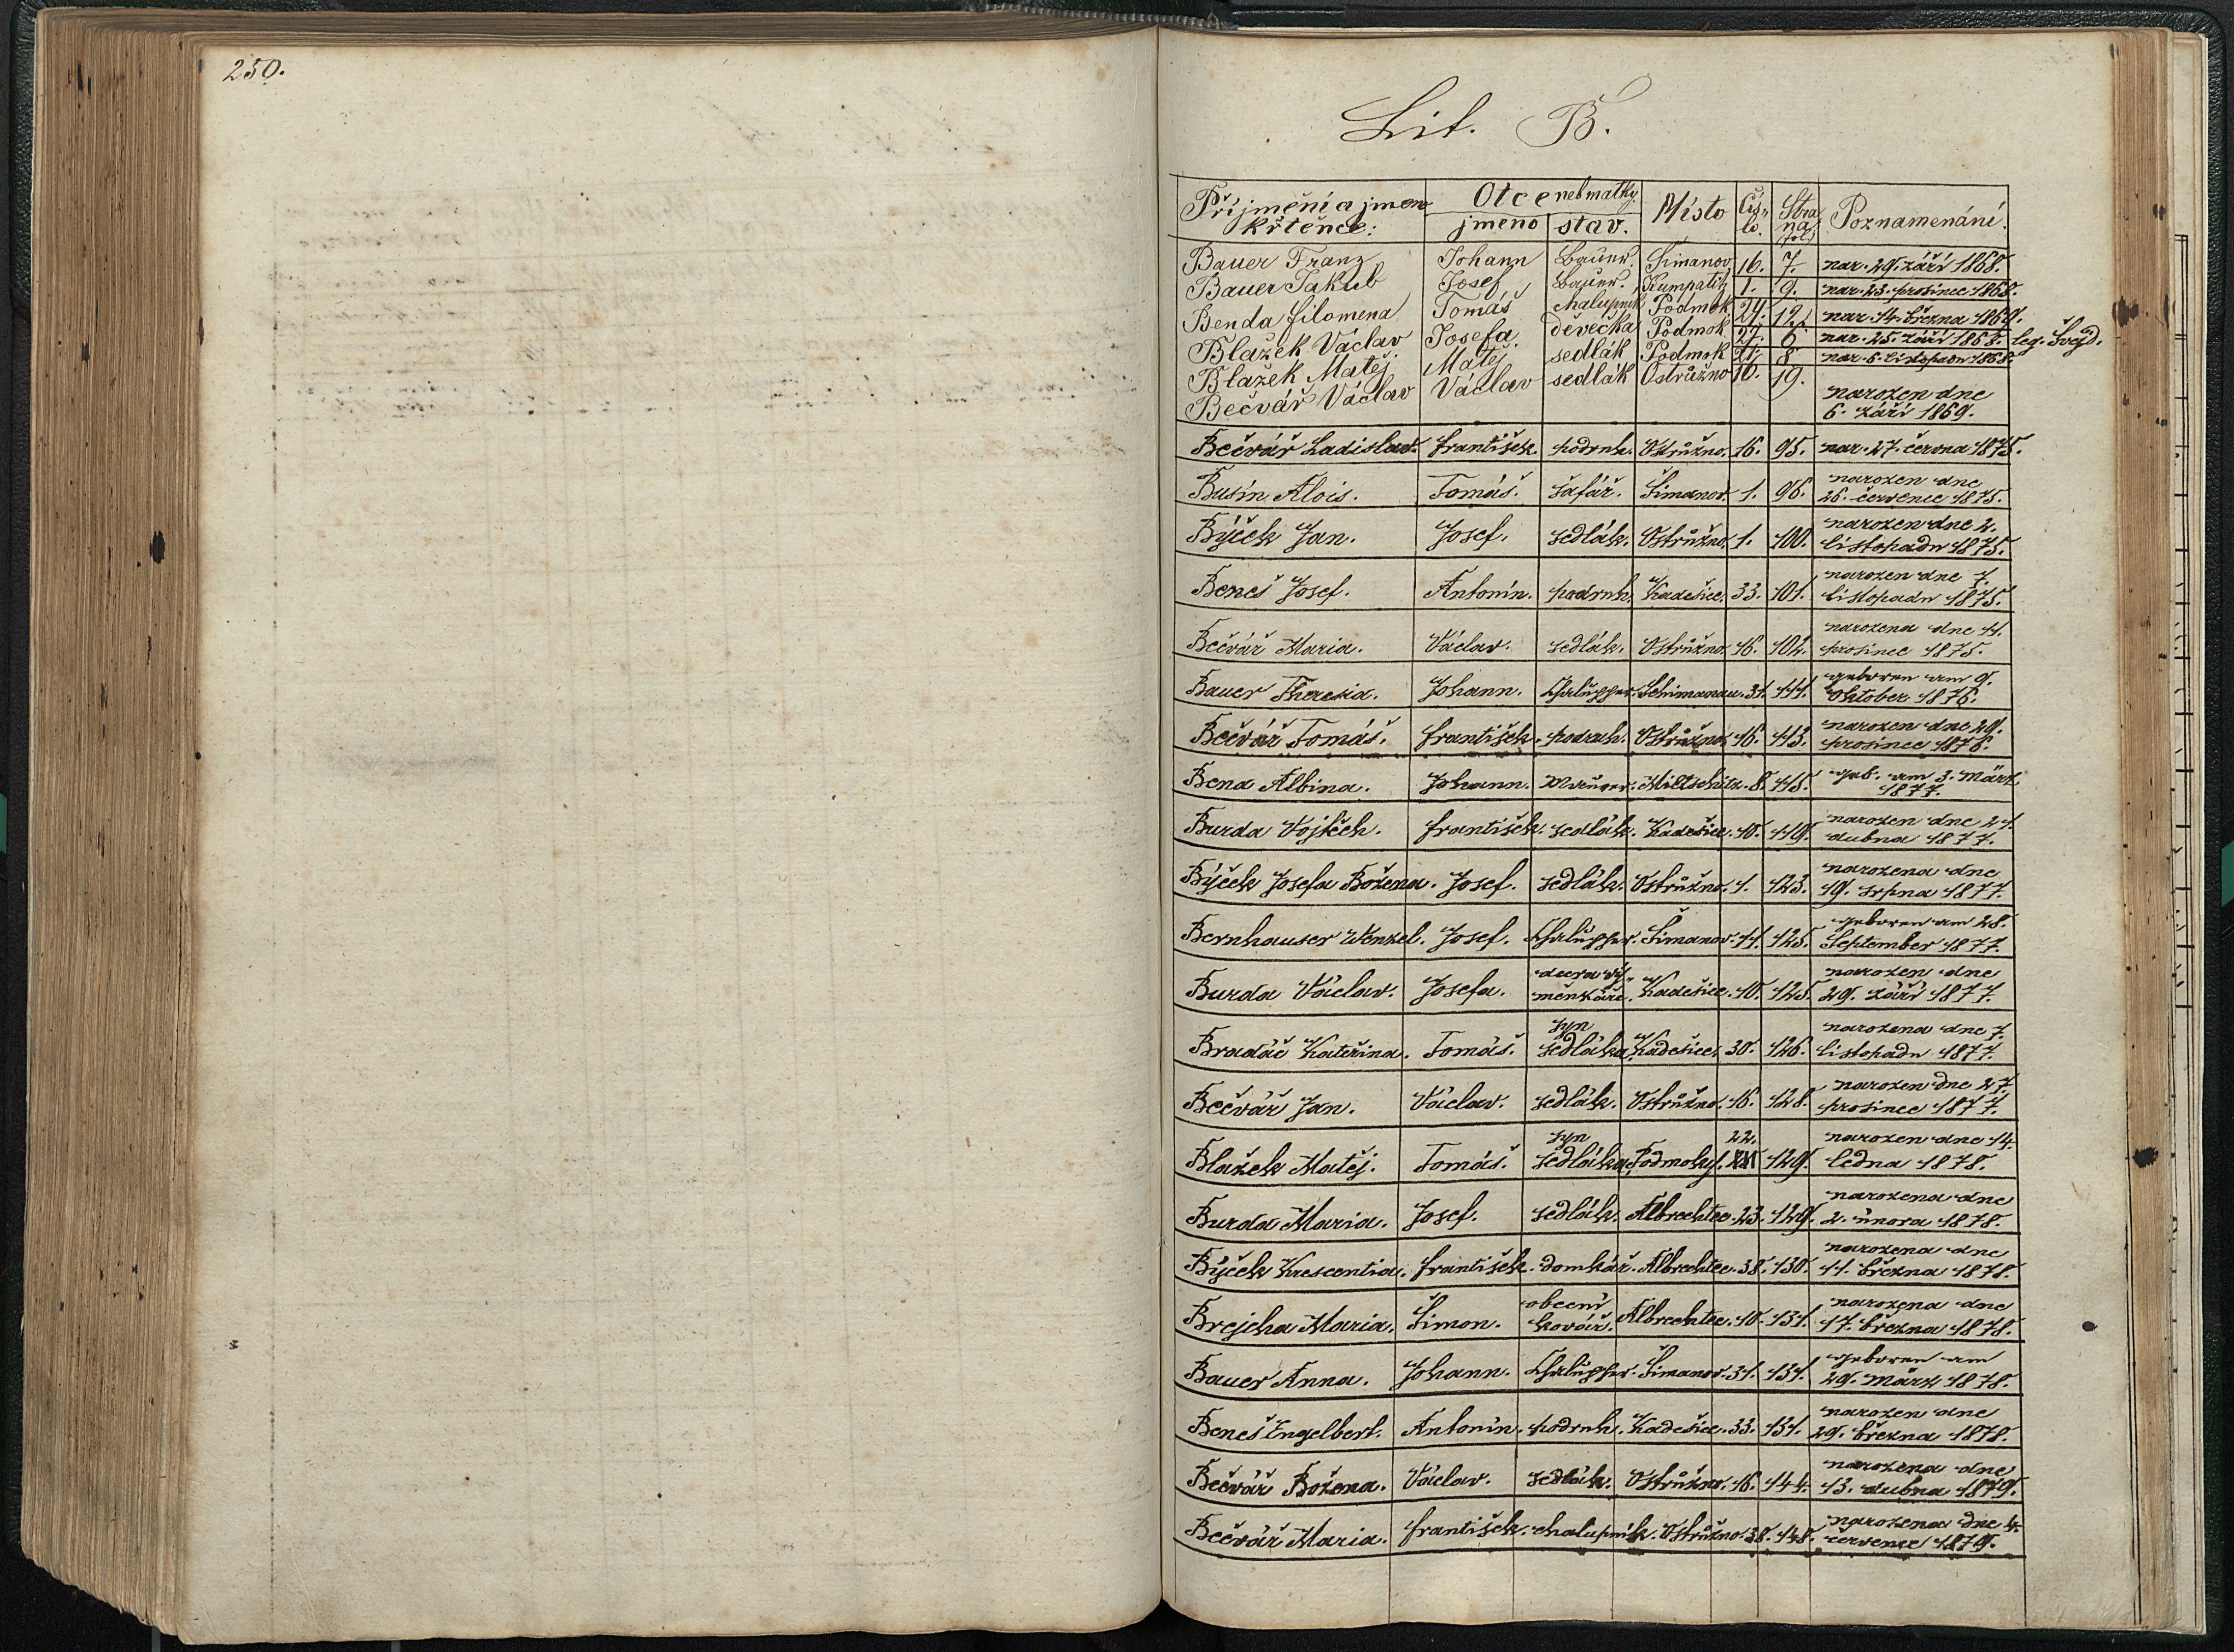 250.
Lit. B.
Příjmení a jmeno křtěnce: Otce neb matky jmeno stav. Místo Čís-lo. Stra na fol. Poznamenání.
Bauer Franz Johann Bauer. Šimanov 16. 7. nar. 29. září 1868.
Bauer Jakub Josef Bauer. Kumpatitz 1. 9. nar. 23. prosince 1868.
Benda Filomena Tomáš chalupník Podmok 29. 12. nar. 14. března 1869.
Blažek Václav Josefa. děvečka Podmok 27. 6 nar. 25. září 1868. leg. Švejd.
Blažek Matěj Matěj sedlák Podmok 21. 8 nar. 6. listopadu 1868.
Bečvář Václav Václav sedlák Ostružno 16. 19. narozen dne
6. září 1869.
Bečvář Ladislav. František. podruh. Ostružno. 16. 95. nar. 27. června 1875.
Busín Alois. Tomáš. šafář. Šimanov. 1. 96. narozen dne
26. července 1875.
Býček Jan. Josef. sedlák. Ostružno. 1. 100. narozen dne 2.
listopadu 1875.
Beneš Josef. Antonín. podruh. Kadešice. 33. 101. narozen dne 7.
listopadu 1875.
Bečvář Maria. Václav. sedlák. Ostružno. 16. 102. narozena dne 11.
prosince 1875.
Bauer Theresia. Johann. Chalupper. Schimanau. 31. 111. geboren am 9.
Oktober 1876.
Bečvář Tomáš. František. podruh. Ostružno. 16. 113. narozen dne 29.
prosince 1876.
Bena Albina. Johann. Miltschitz. 8. 115. geb. am 3. März
1877.
Burda Vojtěch. František. sedlák. Kadešice. 10. 119. narozen dne 21.
dubna 1877.
Býček Josefa Božena. Josef. sedlák. Ostružno. 1. 123. narozena dne
19. srpna 1877.
Bernhauser Wenzel. Josef. Chalupper. Šimanov. 11. 125. geboren am 28.
September 1877.
Burda Václav. Josefa. dcera vý-
měnkáře. Kadešice. 10. 125. narozen dne
29. září 1877.
Bradáč Kateřina. Tomáš. syn
sedláka. Kadešice. 30. 126. narozena dne 7.
listopadu 1877.
Bečvář Jan. Václav. sedlák. Ostružno. 16. 128. narozen dne 27.
prosince 1877.
Blažek Matěj. Tomáš. syn
sedláka. Podmoky. 22. 129. narozen dne 14.
ledna 1878.
Burda Maria. Josef. sedlák. Albrechtec. 23. 129. narozena dne
2. února 1878.
Býček Krescentia. František. domkář. Albrechtec. 38. 130. narozena dne
11. března 1878.
Brejcha Maria. Šimon. obecní
kovář. Albrechtec. 10. 131. narozena dne
17. března 1878.
Bauer Anna. Johann. Chalupper. Šimanov. 31. 131. geboren am
29. März 1878.
Beneš Engelbert. Antonín. podruh. Kadešice. 33. 131. narozen dne
29. března 1878.
Bečvář Božena. Václav. sedlák. Ostružno. 16. 144. narozena dne
13. dubna 1879.
Bečvář Maria. František. chalupník. Ostružno. 38. 148. narozena dne 4.
července 1879.